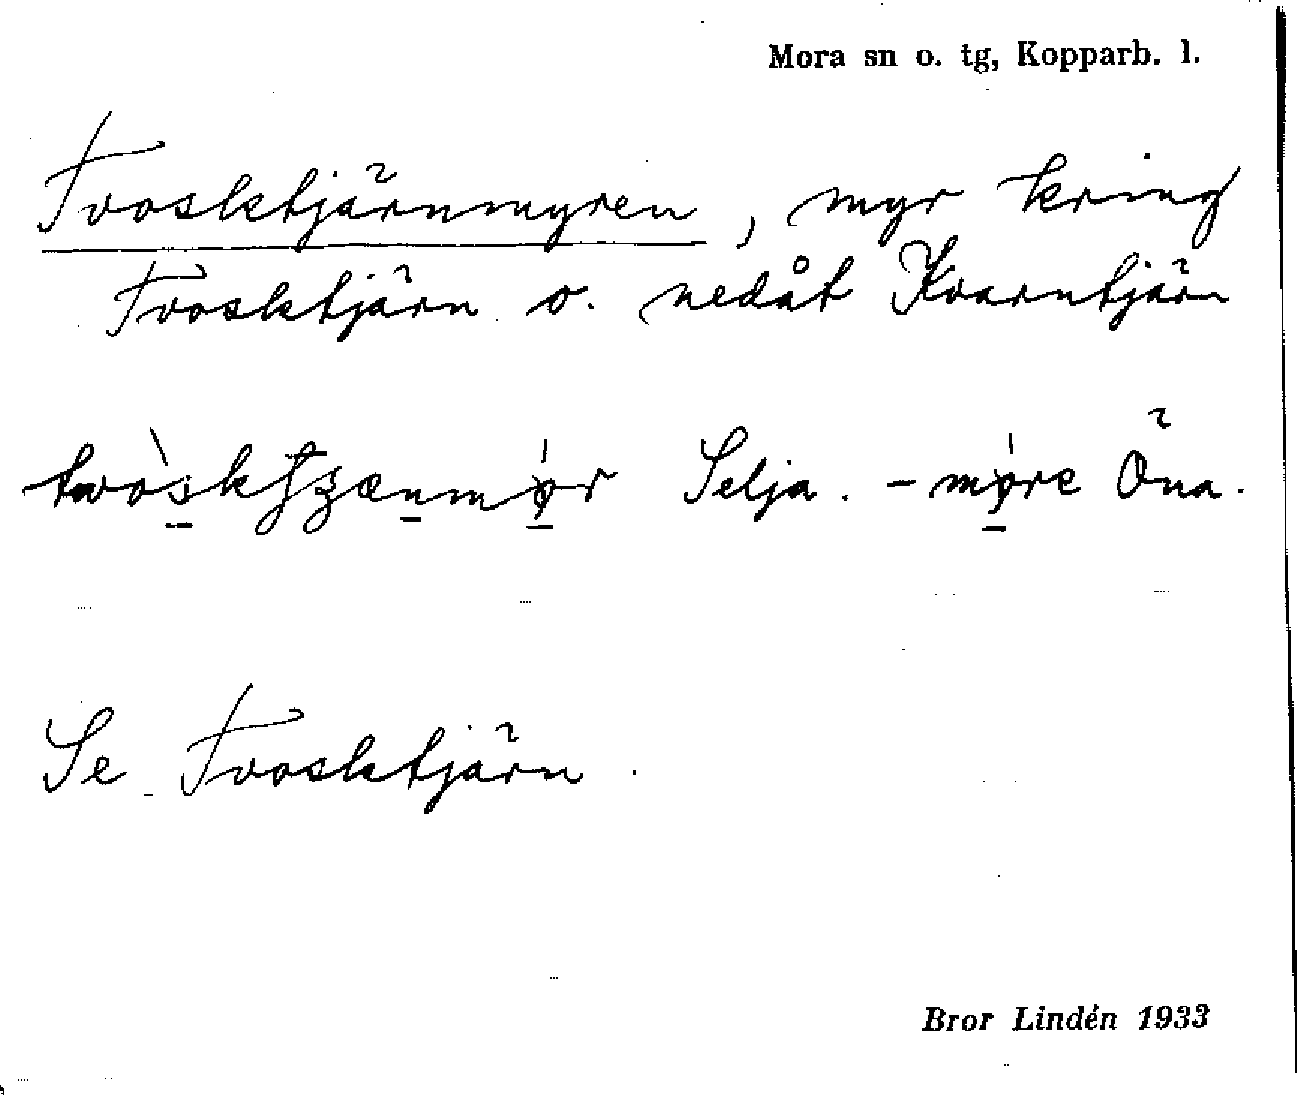 Mora sn o. tg, Kopparb. l.
Tvosktjärnmyren, myr kring
Tvosktjärn o. nedåt Kvarntjärn
Selja. Öna.
Se Tvosktjärn.
Bror Lindén 1933